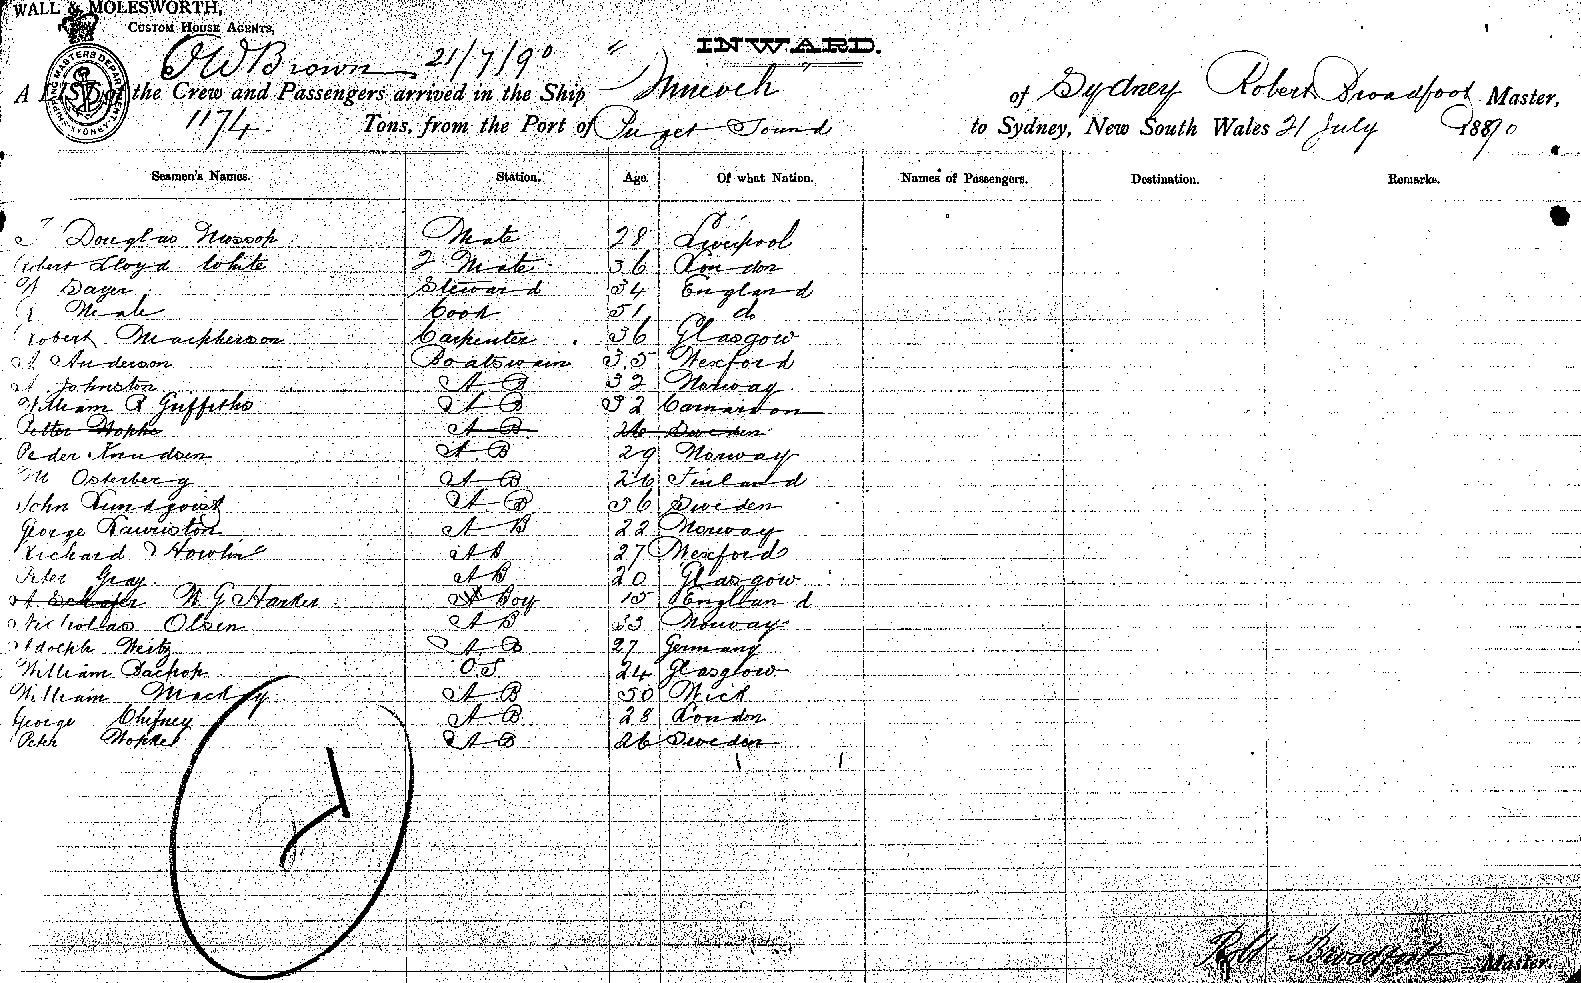 WALL & MOLESWORTH,
CUSTOM HOUSE AGENTS,
INWARD.
Brown 21/7/90
A LIST of the Crew and Passengers arrived in the Ship of Sydney Robert Broadfoot Master,
1174 Tons, from the Port of Puget Sound to Sydney, New South Wales 21 July 1890
Seamen's Names. Station. Age. Of what Nation. Names of Passengers. Destination. Remarks.
Douglas Mate 28 Liverpool
Robert Lloyd White 2 Mate 36 London
Sayer Steward 34 England
Cook 51 do
Robert Macpherson Carpenter 36 Glasgow
A Anderson Boatswain 35 Wexford
A Johnston A B 32 Norway
William R Griffiths A B 32 Carnarvon
Petter Hopke A B 26 Sweden
Peder Knudsen A B 29 Norway
M Osterberg A B 26 Finland
John Lundqvist A B 36 Sweden
George A B 22 Norway
Richard Howlin A B 27 Wexford
Peter Gray A B 20 Glasgow
W G Harker Boy 15 England
Nicholas Olsen A B 33 Norway
Adolph Weitz A B 27 Germany
William O.S 24 Glasgow
William Mackay A B 50 Wick
George Chifney A B 28 London
Peter A B 26 Sweden
Robt Broadfoot Master.